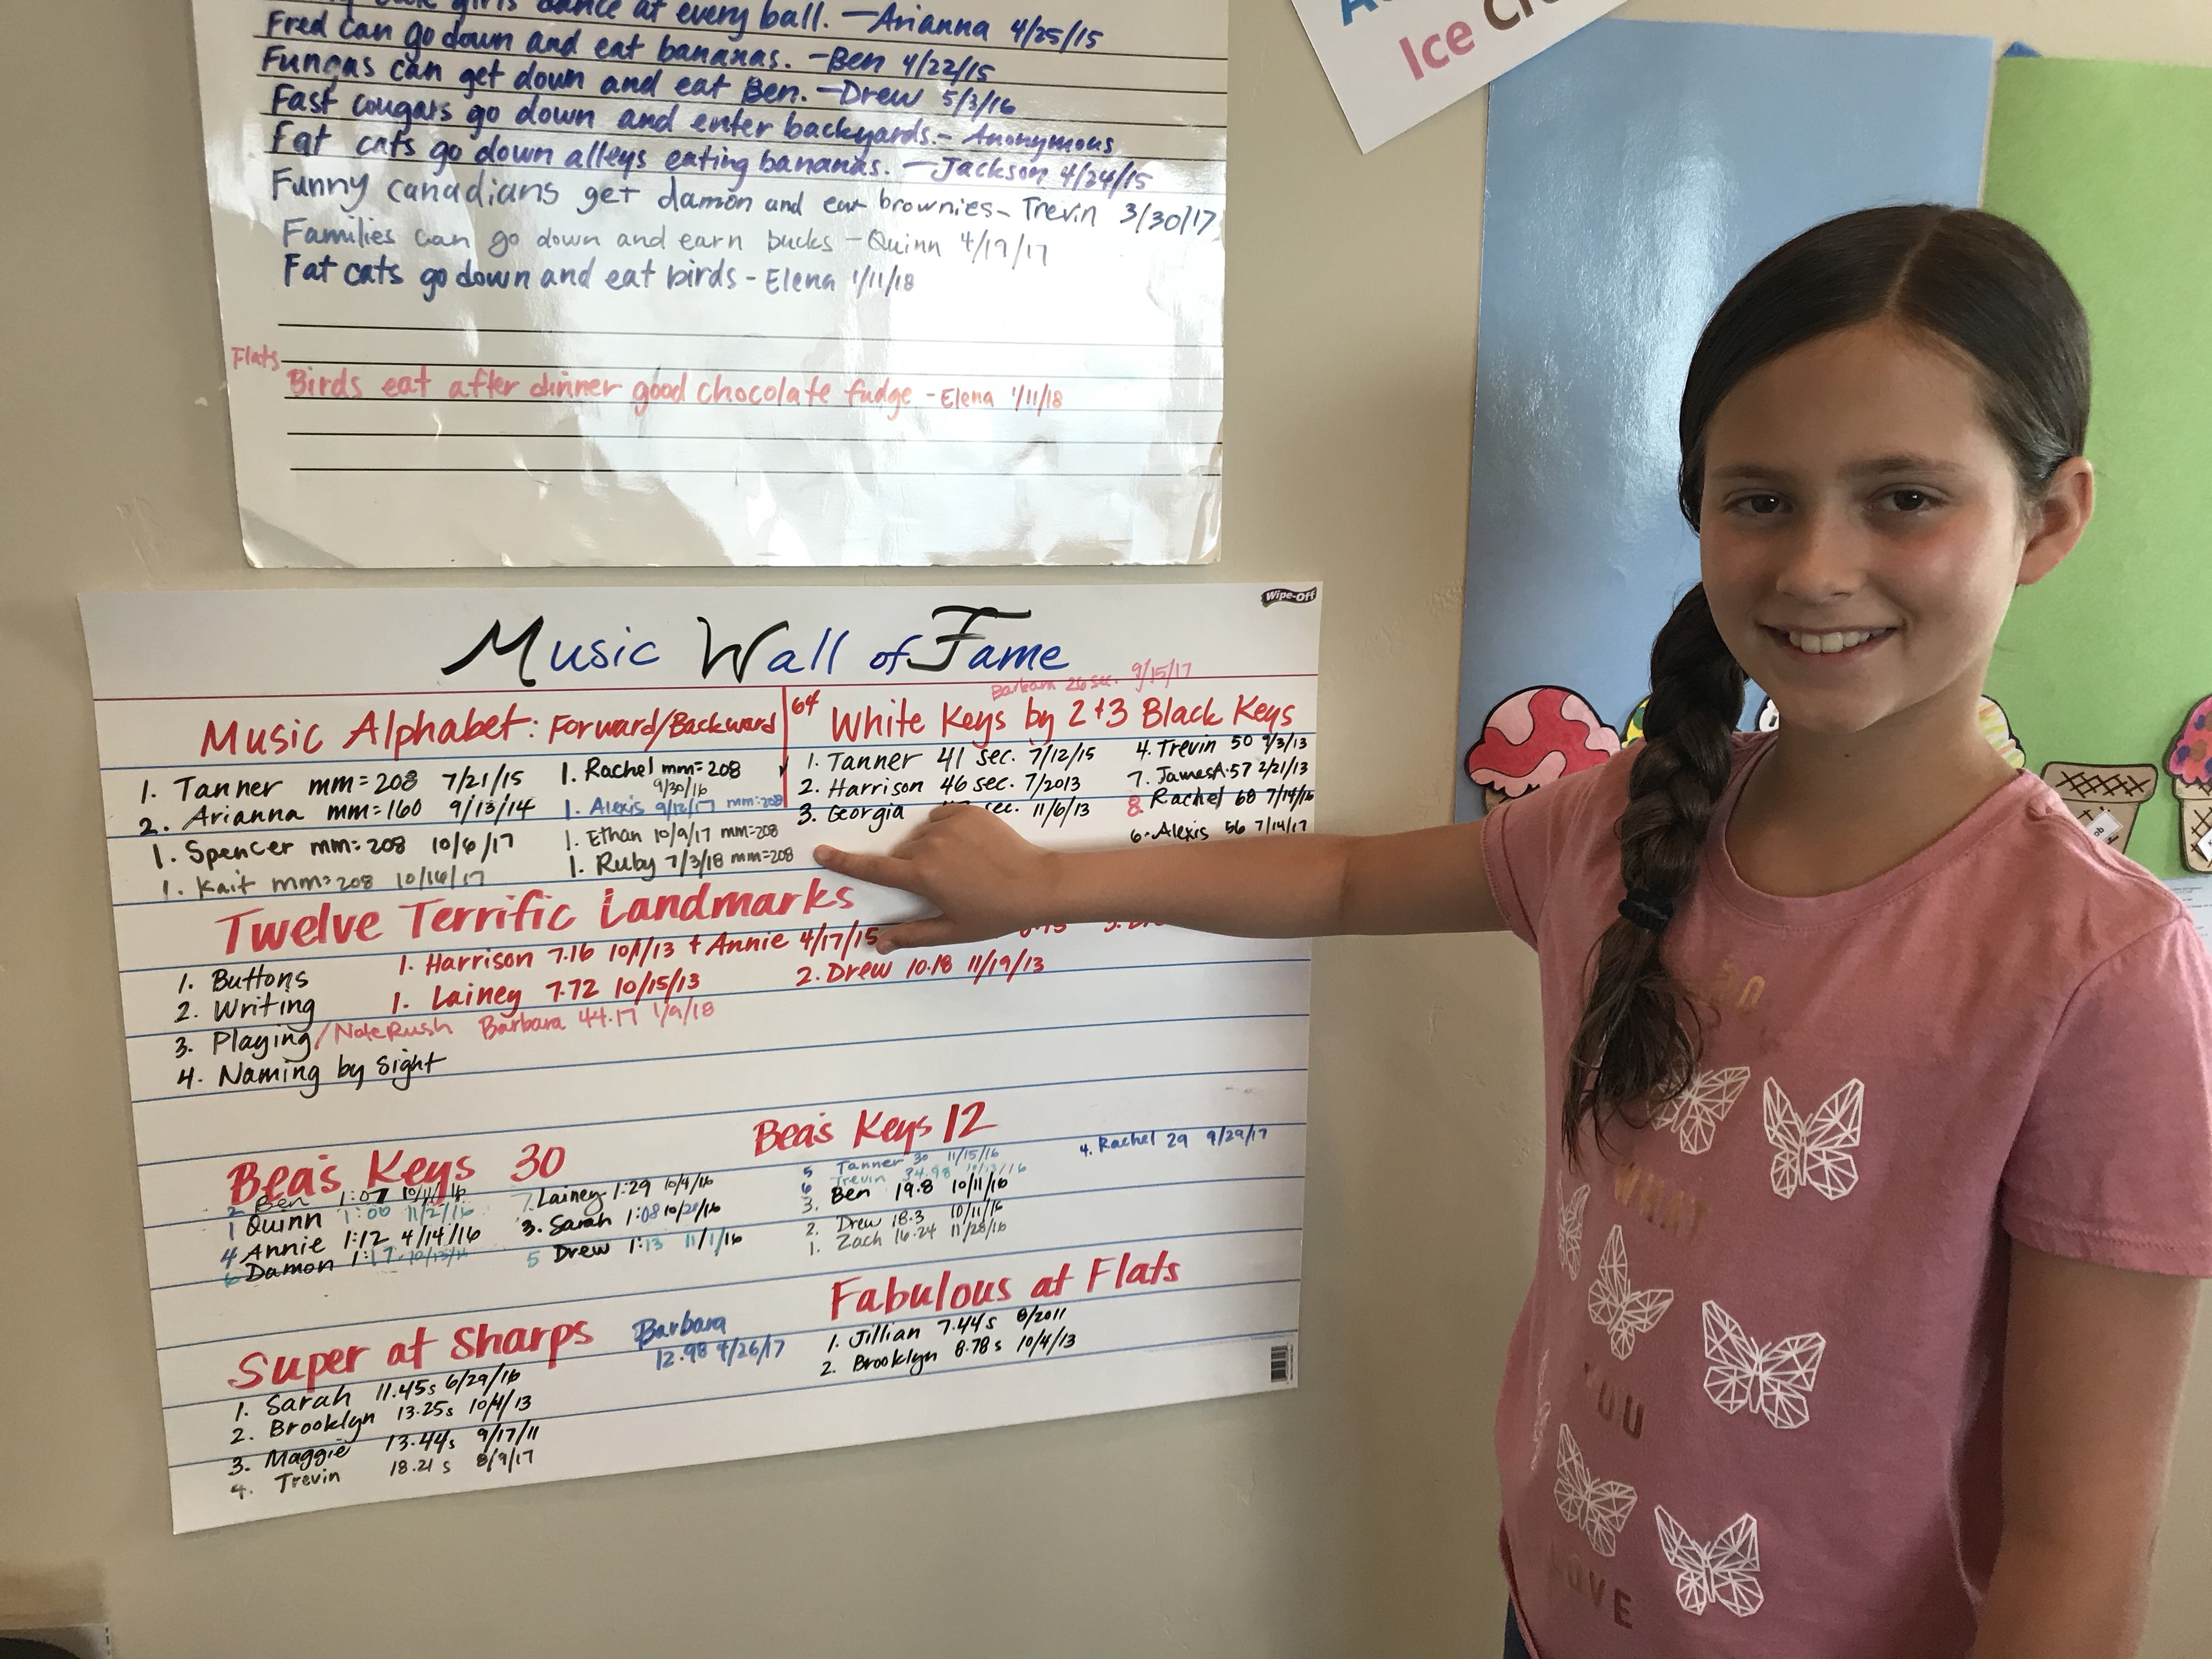 girls dance at every ball. —Arianna 4/25/15
Fred can go down and eat bananas. —Ben 4/22/15
Fungas can get down and eat Ben. —Drew 5/3/16
Fast cougars go down and enter backyards.— Anonymous
Fat cats go down alleys eating bananas. —Jackson 4/24/15
Funny canadians get damon and eat brownies— Trevin 3/30/17
Families can go down and earn bucks —Quinn 4/19/17
Fat cats go down and eat birds - Elena 1/11/18
Flats
Birds eat after dinner good chocolate fudge - Elena 1/11/18
Ice
Wipe-Off
Music Wall of Fame
Barbara 26 sec. 9/15/17
Music Alphabet: Forward/Backward
1. Tanner mm=208 7/21/15
2. Arianna mm=160 9/13/14
1. Spencer mm=208 10/6/17
1. Kait mm=208 10/16/17
1. Rachel mm=208
9/30/16
1. Alexis 9/12/17 mm=208
1. Ethan 10/9/17 mm=208
1. Ruby 7/3/18 mm=208
64 White Keys by 2+3 Black Keys
1. Tanner 41 sec. 7/12/15
2. Harrison 46 sec. 7/2013
3. Georgia sec. 11/6/13
4. Trevin 50 9/3/13
7. JamesA. 57 2/21/13
8 Rachel 68 7/14/16
6. Alexis 56 7/14/17
Twelve Terrific Landmarks
1. Buttons
2. Writing
3. Playing/NoteRush Barbara 44.17 1/9/18
4. Naming by Sight
1. Harrison 7.16 10/1/13 + Annie 4/17/15
1. Lainey 7.72 10/15/13
2. Drew 10.18 11/19/13
Bea's Keys 30
2 Ben 1:07
1 Quinn 1:06 11/2/16
4 Annie 1:12 4/14/16
6 Damon 1:17 10/13/16
7. Lainey 1:29 10/4/16
3. Sarah 1:08 10/20/16
5 Drew 1:13 11/1/16
Bea's Keys 12
5 Tanner 30 11/15/16
6 Trevin 34.98
3. Ben 19.8 10/11/16
2. Drew 18.3 10/11/16
1. Zach 16.24 11/28/16
4. Rachel 29 9/29/17
Super at Sharps
Barbara
12.98 4/26/17
1. Sarah 11.45s 6/29/16
2. Brooklyn 13.25s 10/4/13
3. Maggie 13.44s 9/17/11
4. Trevin 18.21 s 8/9/17
Fabulous at Flats
1. Jillian 7.44s 8/2011
2. Brooklyn 8.78s 10/4/13
WHAT
YOU
LOVE